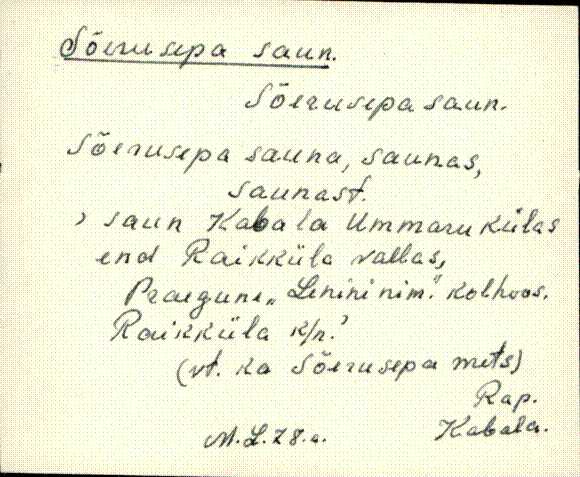 Sõerusepa saun.
Sõerusepa saun.
Sõerusepa sauna, saunas,
saunast.
, saun Kabala Ummaru külas
end Raikküla vallas,
Praegune „Lenini nim." kolhoos.
Raikküla k/n.'
(vt. ka Sõerusepa mets)
Rap.
Kabala.
M. L. 78. a.